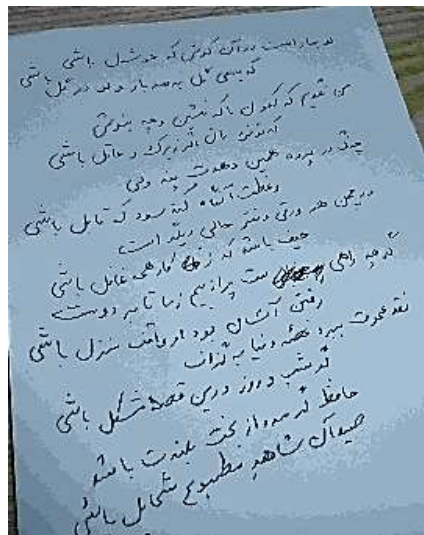 نو بهار است در آن کوش که خوشدل باشی
که بسی گل بدمد باز و تو در گل باشی
من نگویم که کنون با که نشین و چه بنوش
که تو خود دانی اگر زیرک و عاقل باشی
چنگ در پرده همین می‌دهدت پند ولی
وعظت آنگاه کند سود که قابل باشی
در چمن هر ورقی دفتر حالی دگر است
حیف باشد که ز کار همه غافل باشی
گرچه راهی ست پر از بیم ز ما تا بر دوست
رفتن آسان بود ار واقف منزل باشی
نقد عمرت ببرد غصه دنیا به گزاف
گر شب و روز در این قصه مشکل باشی
حافظ گر مدد از بخت بلندت باشد
صید آن شاهد مطبوع شمایل باشی